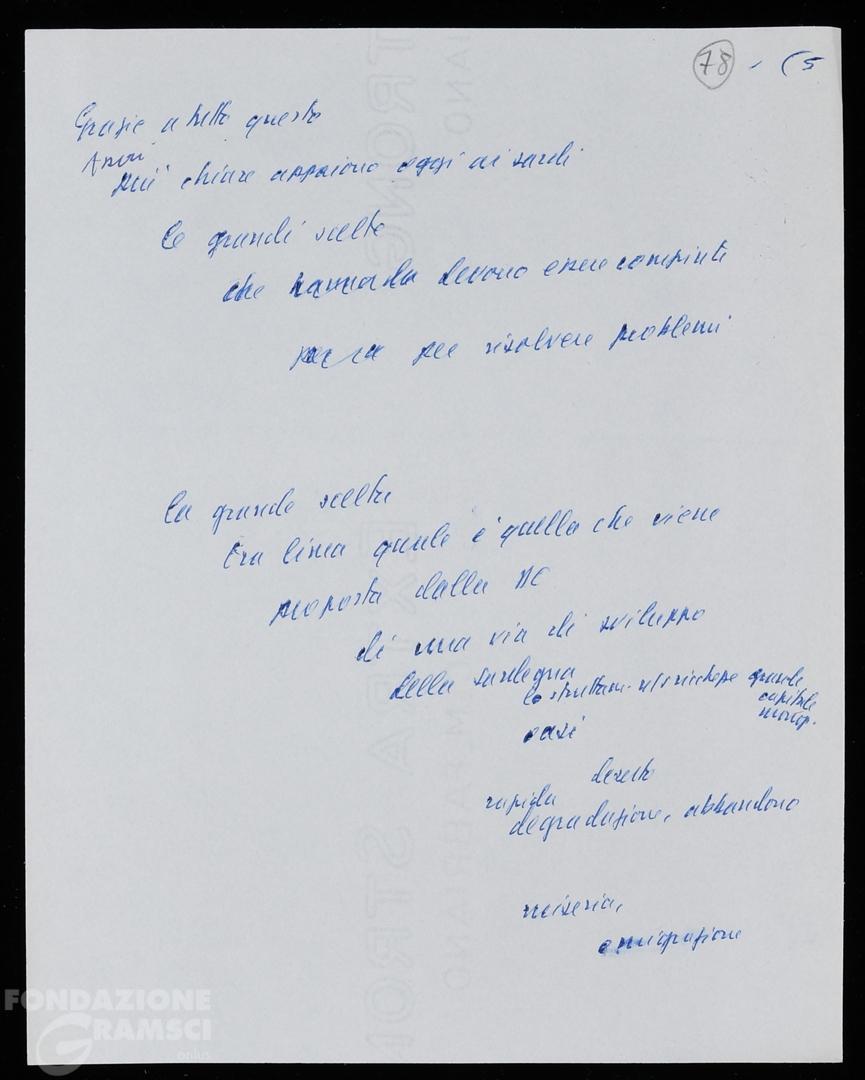 78 - (5
Grazie a tutto questo
più chiare appaiono oggi ai sardi
le grandi scelte
che devono essere compiute
per risolvere problemi
la grande scelta
tra linea quale è quella che viene
proposta dalla DC
di una via di sviluppo
della Sardegna
lo sfruttam. ricchezze grande
capitale
monop.
oasi
deserto
rapida
degradazione, abbandono
miseria,
emigrazione
FONDAZIONE
GRAMSCI
onlus